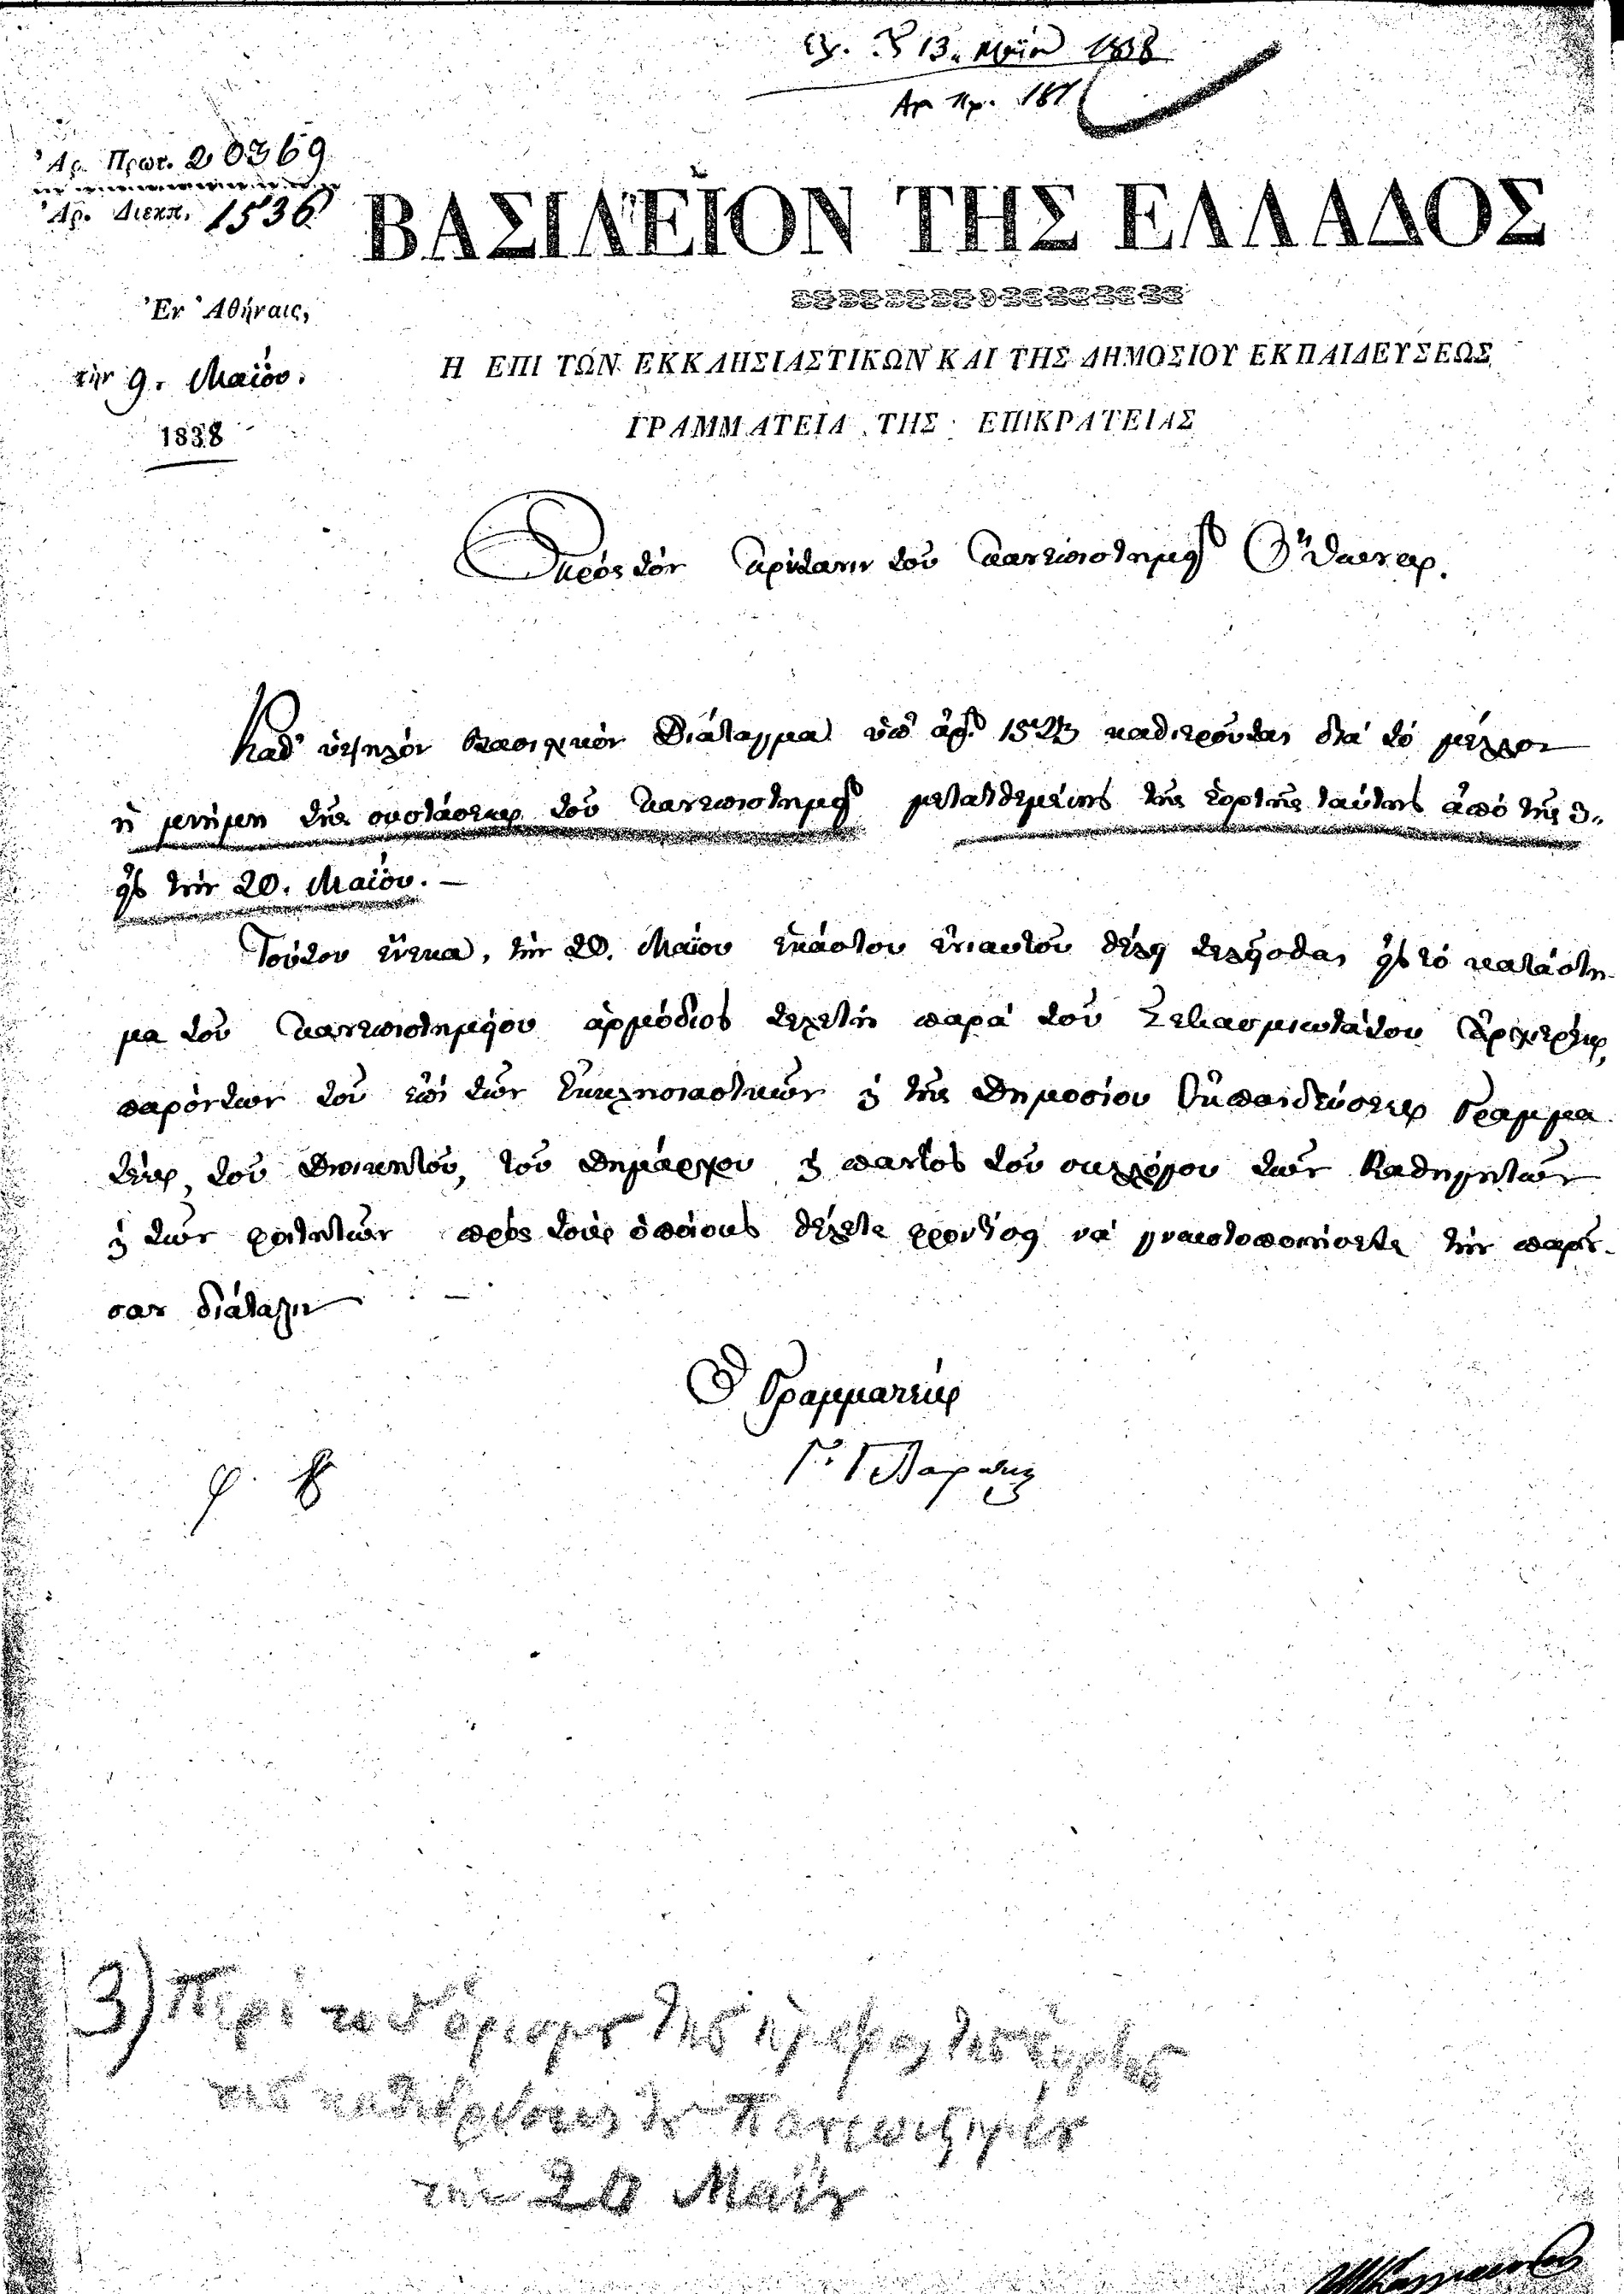 13. Μαΐου 1838
Αρ. Πρ. 181
Ἀρ. Πρωτ. 20369
Ἀρ. Διεκπ. 1536
ΒΑΣΙΛΕΙΟΝ ΤΗΣ ΕΛΛΑΔΟΣ
Ἐν Ἀθήναις,
τὴν 9. Μαΐου.
1838
Η ΕΠΙ ΤΩΝ ΕΚΚΛΗΣΙΑΣΤΙΚΩΝ ΚΑΙ ΤΗΣ ΔΗΜΟΣΙΟΥ ΕΚΠΑΙΔΕΥΣΕΩΣ
ΓΡΑΜΜΑΤΕΙΑ ΤΗΣ ΕΠΙΚΡΑΤΕΙΑΣ
Πρὸς τὸν Πρύτανιν τοῦ Πανεπιστημείου Ὄθωνος.
Καθ' ὑψηλὸν Βασιλικὸν Διάταγμα ὑπ' ἀρ. καθιεροῦται διὰ τὸ μέλλον
ἡ μνήμη τῆς συστάσεως τοῦ Πανεπιστημείου μετατεθειμένης τῆς ἑορτῆς ταύτης ἀπὸ τῆς 3.
εἰς τὴν 20. Μαΐου. –
Τούτου ἕνεκα, τὴν 20. Μαΐου ἑκάστου ἐνιαυτοῦ θέλει τελεῖσθαι εἰς τὸ κατάστη-
μα τοῦ Πανεπιστημείου ἁρμόδιος τελετὴ παρὰ τοῦ Σεβασμιωτάτου Ἀρχιερέως,
παρόντων τοῦ ἐπὶ τῶν Ἐκκλησιαστικῶν καὶ τῆς Δημοσίου Ἐκπαιδεύσεως Γραμμα-
τέως, τοῦ Διοικητοῦ, τοῦ Δημάρχου καὶ παντὸς τοῦ συλλόγου τῶν Καθηγητῶν
καὶ τῶν φοιτητῶν πρὸς τοὺς ὁποίους θέλετε φροντίσει νὰ γνωστοποιήσετε τὴν παροῦ-
σαν διάταξιν –
Ὁ Γραμματεὺς
Γ. Γλαράκης
3) Περὶ τοῦ ὁρισμοῦ τῆς ἡμέρας τῆς ἑορτῆς
τῆς καθιδρύσεως τοῦ Πανεπιστημείου
τὴν 20 Μαΐου